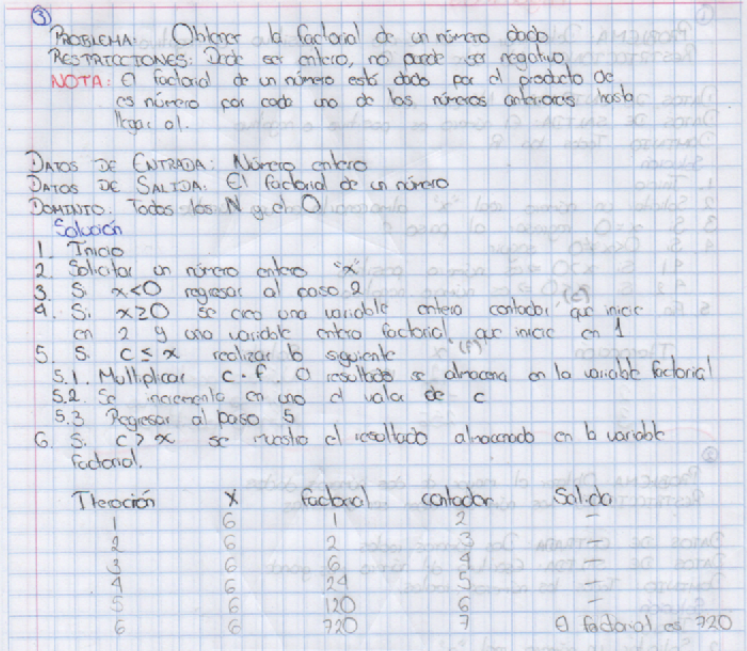 ③
PROBLEMA: Obtener el factorial de un número dado.
RESTRICCIONES: Debe ser entero, no puede ser negativo.
NOTA: El factorial de un número está dado por el producto de
es número por cada uno de los números anteriores hasta
llegar al.
DATOS DE ENTRADA: Número entero
DATOS DE SALIDA: El factorial de un número
DOMINIO: Todos los N y el 0
Solución
1. Inicio
2. Solicitar un número entero "x"
3. Si x<0 regresar al paso 2
4. Si x≥0 se crea una variable entero contador "(c)" que inicie
en 2 y una variable entero factorial "(f)" que inicie en 1
5. Si c≤x realizar lo siguiente
5.1. Multiplicar c·f. El resultado se almacena en la variable factorial
5.2. Se incrementa en uno el valor de c
5.3 Regresar al paso 5
6. Si c>x se muestra el resultado almacenado en la variable
factorial.
Iteración X factorial contador Salida
1 6 1 2 —
2 6 2 3 —
3 6 6 4 —
4 6 24 5 —
5 6 120 6 —
6 6 720 7 El factorial es 720